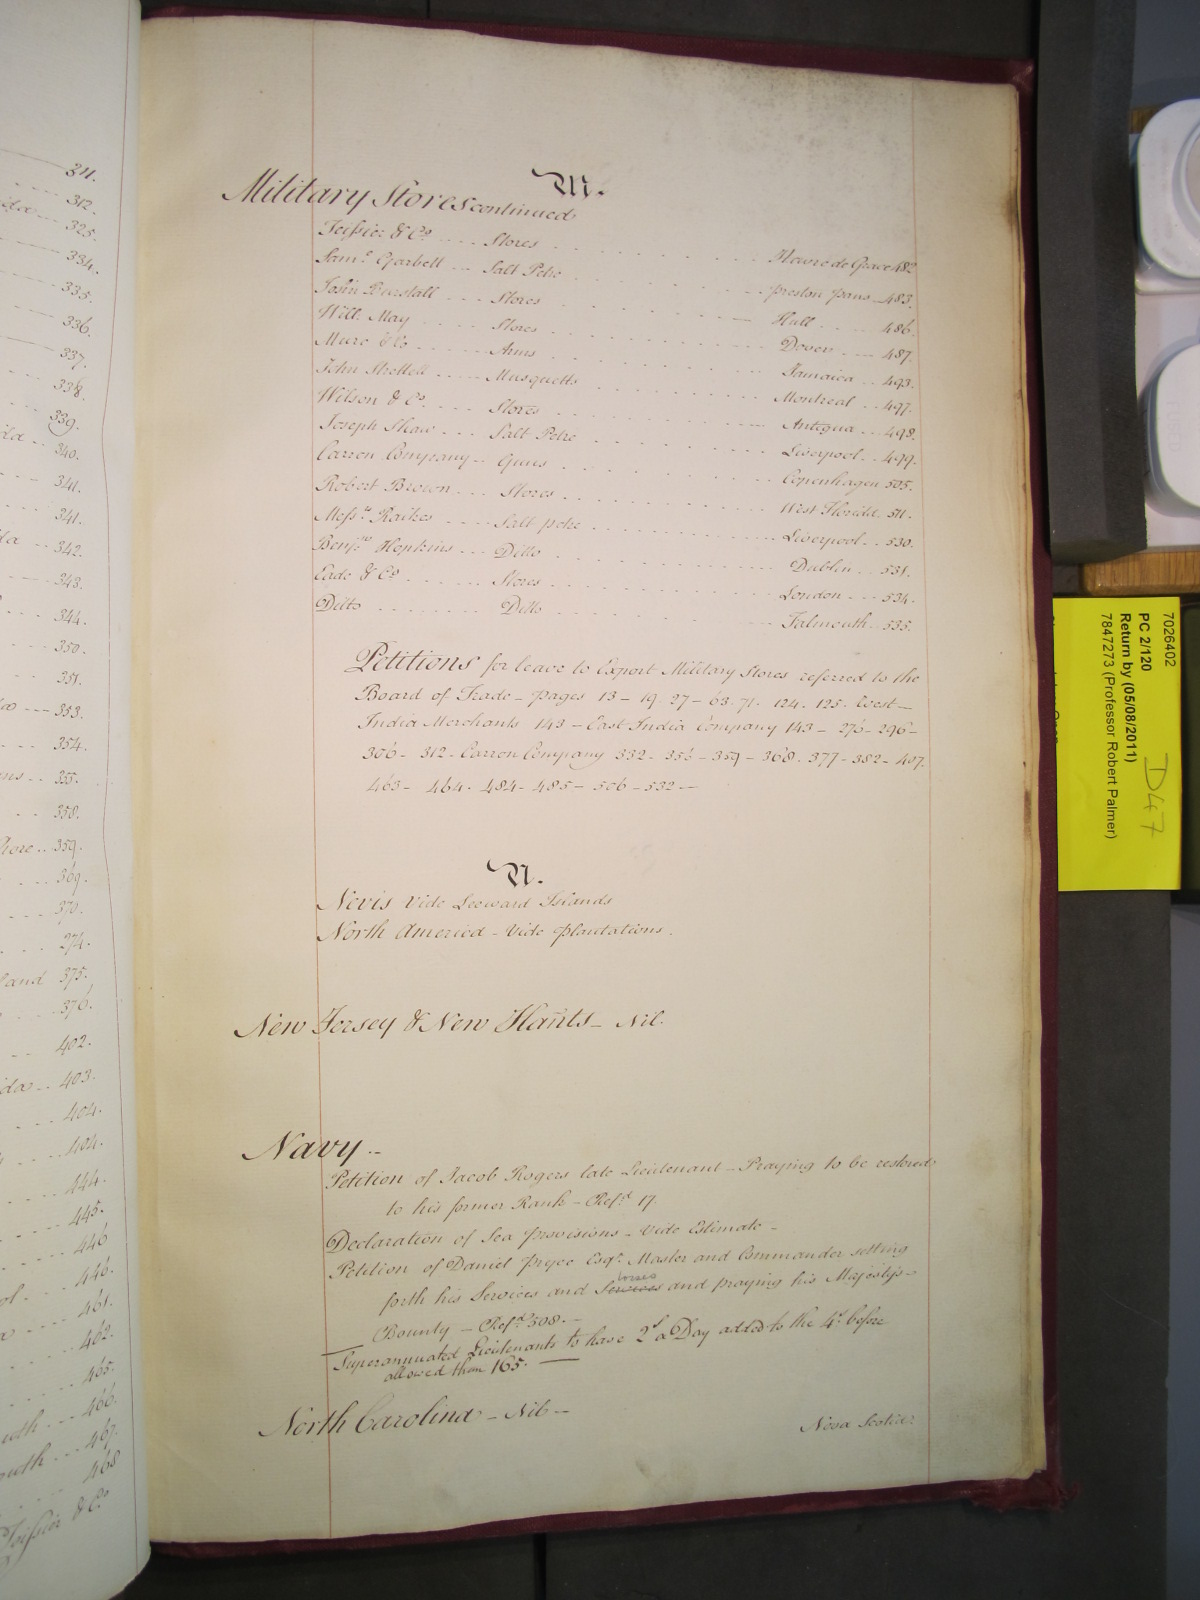 M.
Military Stores continued
Teissier & Co. .... Stores ...... Havre de Grace 482
Sam.l Garbett ... Salt Petre ...... Preston pans 483.
John Burstall .... Stores ...... Hull .... 486.
Will. May ..... Stores ...... Dover .... 487.
Mure & Co ..... Arms ...... Jamaica .. 493.
John Shettell ..... Musquetts ...... Montreal .. 497.
Wilson & Co. .... Stores ...... Antigua ... 498.
Joseph Shaw ... Salt Petre ...... Liverpool .. 499.
Carron Company -- Guns ...... Copenhagen 505.
Robert Brown ... Stores ...... West Florida. 511.
Mess.rs Raikes .... Salt petre ...... Liverpool .. 530.
Benj.n Hopkins ... Ditto ...... Dublin ... 531.
Eade & Co. ...... Stores ...... London ... 534.
Ditto ........ Ditto ...... Falmouth .. 535.
Petitions for leave to Export Military Stores referred to the
Board of Trade - pages 13 - 19. 27 - 63. 71. 124. 125. West -
India Merchants 143 - East India Company 143 - 276 - 296 -
306 - 312 - Carron Company 332 - 356 - 359 - 368. 377 - 382 - 407.
463 - 464. 484 - 485 - 506 - 532 -
N.
Nevis Vide Leeward Islands
North America - Vide plantations.
New Jersey & New Hants - Nil.
Navy --
Petition of Jacob Rogers late Lieutenant - Praying to be restored
to his former Rank - Ref.d 17.
Declaration of Sea provisions - Vide Estimate -
Petition of Daniel pryce Esq.r Master and Commander setting
losses
forth his Services and Services and praying his Majestys -
Bounty - Ref.d 508. -
Superannuated Lieutenants to have 2.s a Day added to the 4.s before
allowed them 165. -
North Carolina - Nil -
Nova Scotia.
311.
312.
325.
334.
335.
336.
337.
338.
339.
340.
341.
341.
342.
343.
344.
350.
351.
353.
354.
355.
358.
359.
369.
370.
274.
375.
376.
402.
403.
404.
404.
444.
445.
446
446.
461.
462.
465.
466.
467.
468
Teissier & Co.
7026402
PC 2/120
Return by (05/08/2011)
7847273 (Professor Robert Palmer)
D47